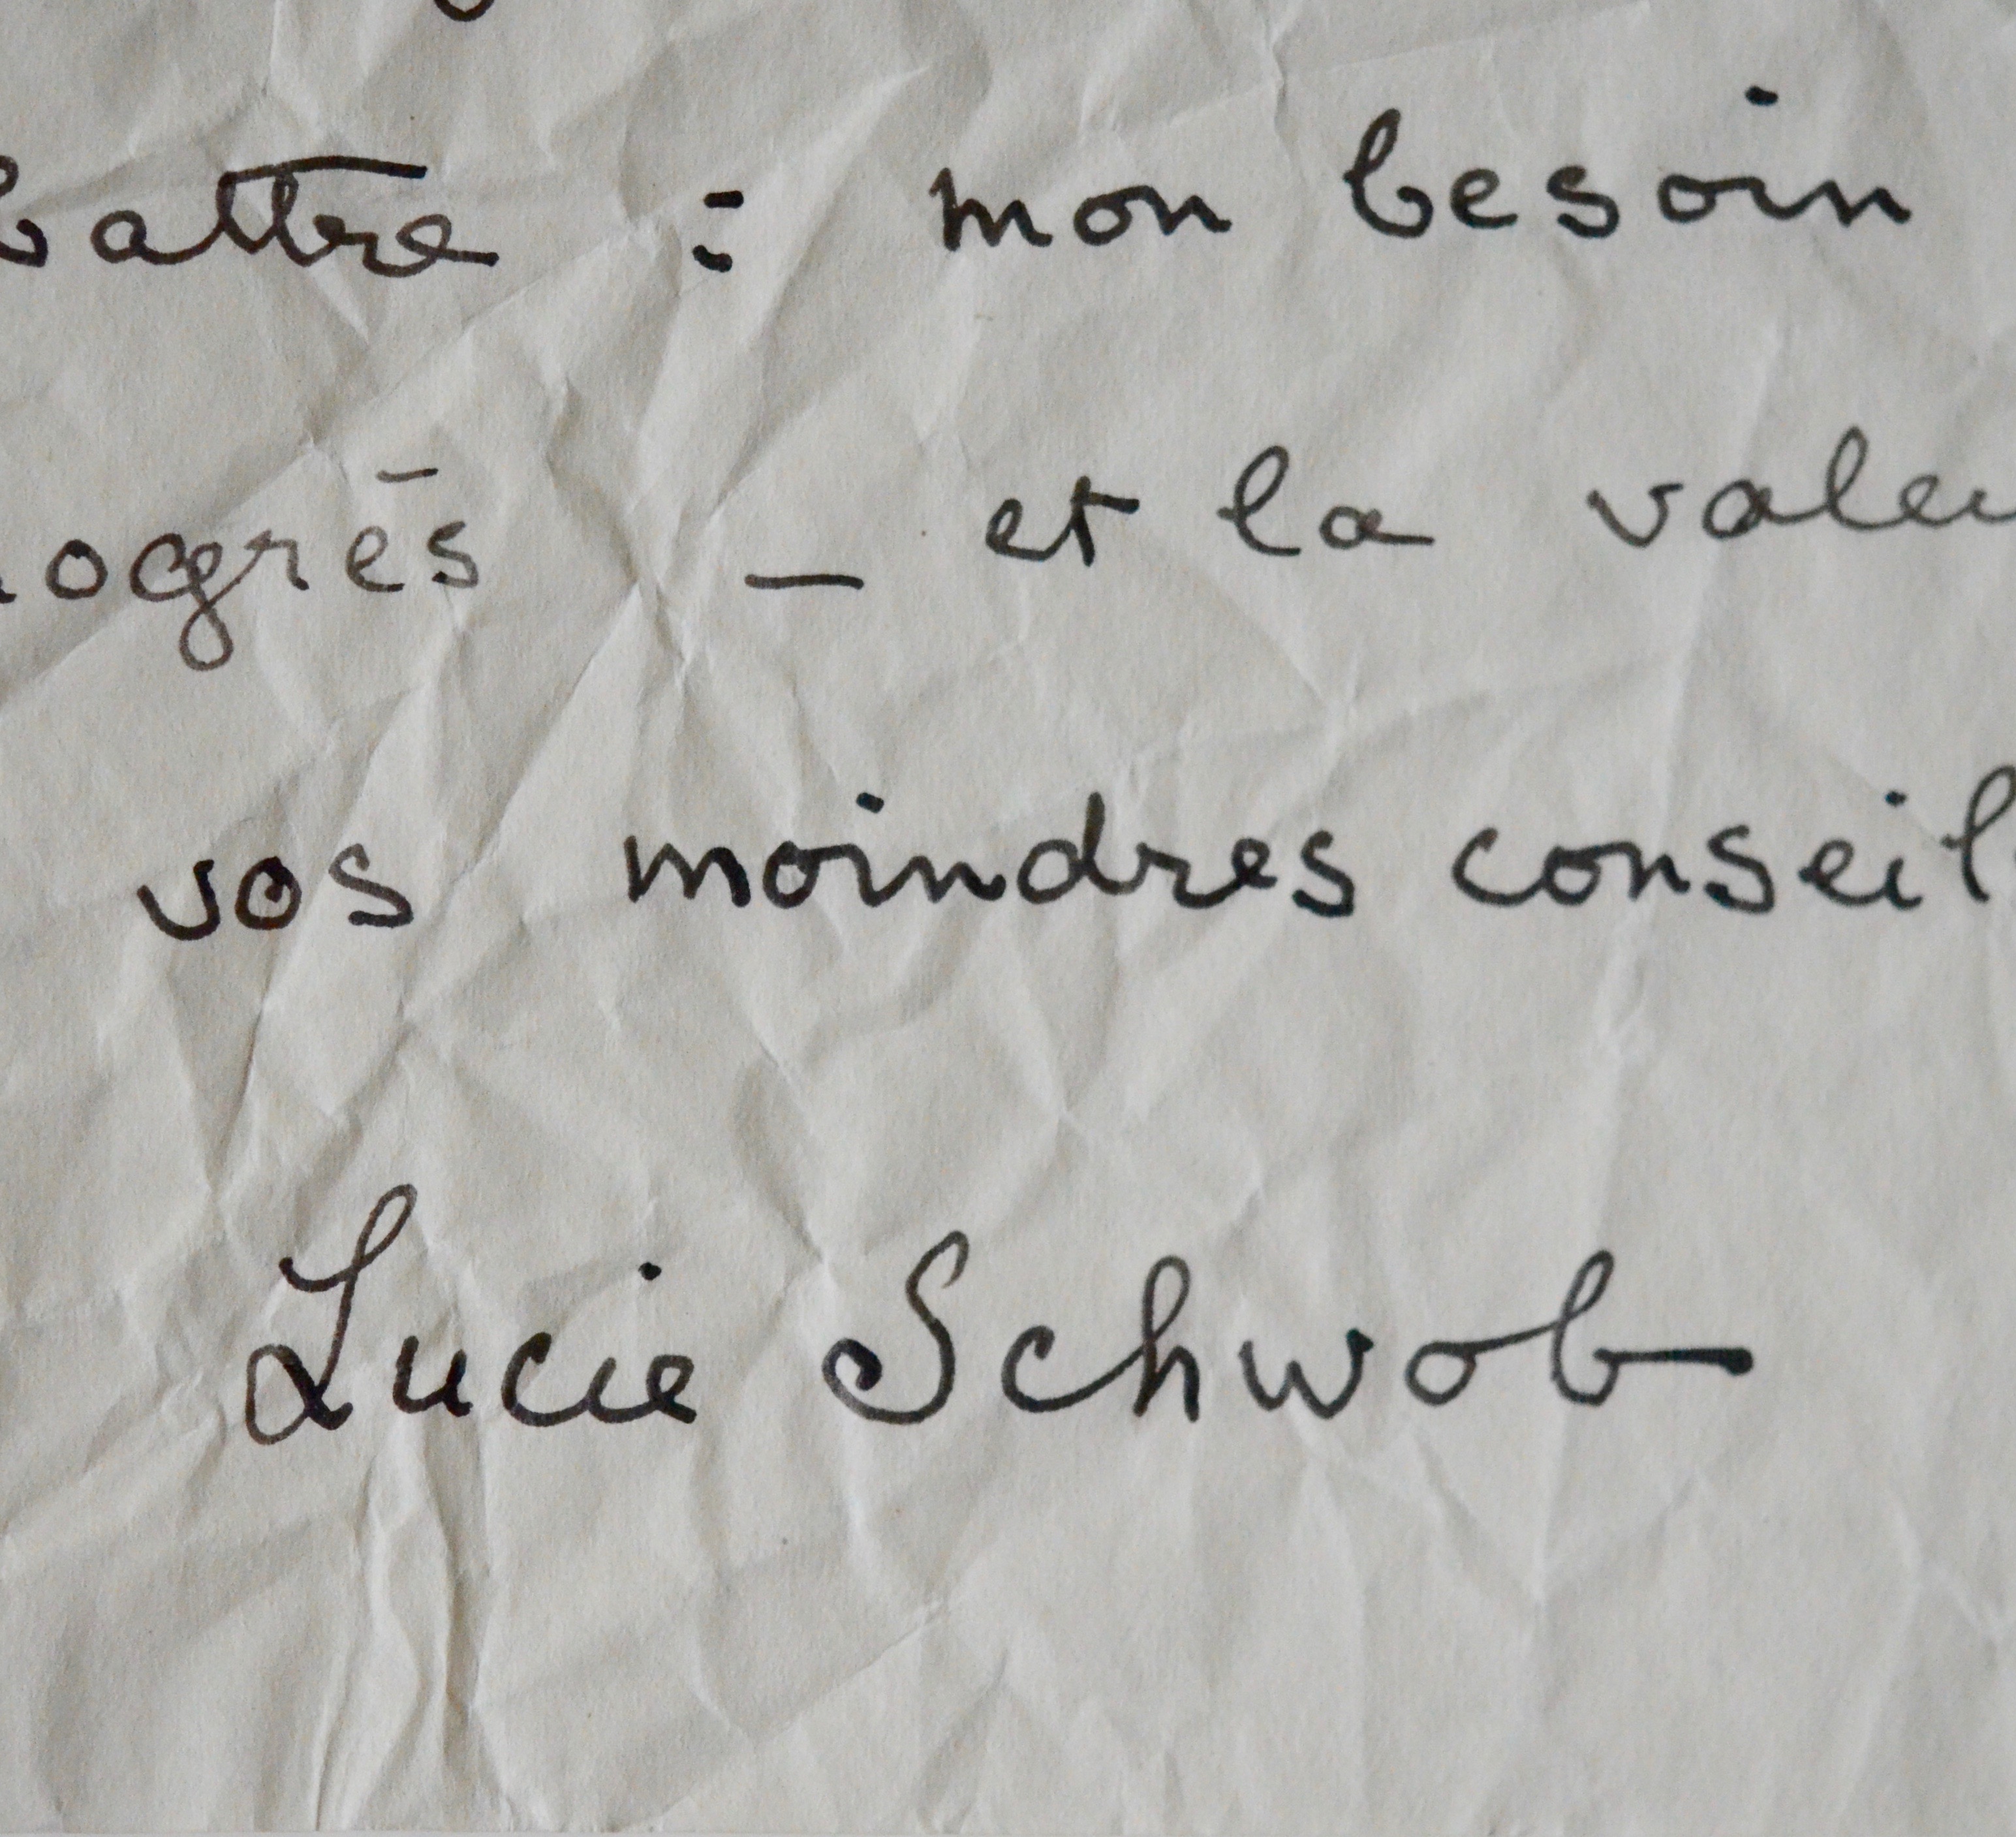 battre : mon besoin
ogrès _ et la valeu
vos moindres conseil
Lucie Schwob